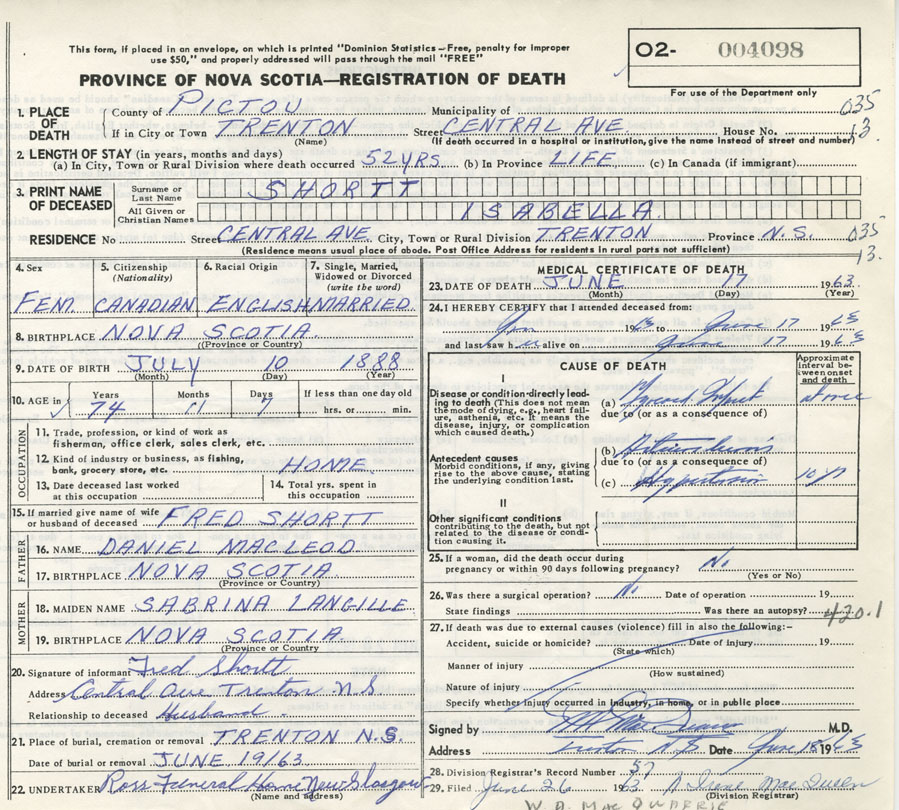 This form, if placed in an envelope, on which is printed "Dominion Statistics—Free, penalty for improper
use $50," and properly addressed will pass through the mail "FREE"
PROVINCE OF NOVA SCOTIA—REGISTRATION OF DEATH
O2- 004098
For use of the Department only
1. PLACE OF DEATH
County of PICTOU Municipality of 035
If in City or Town TRENTON Street CENTRAL AVE. House No. 13
(Name) (If death occurred in a hospital or institution, give the name instead of street and number)
2. LENGTH OF STAY (in years, months and days)
(a) In City, Town or Rural Division where death occurred 52 YRS (b) In Province LIFE (c) In Canada (if immigrant)
3. PRINT NAME OF DECEASED
Surname or Last Name SHORTT
All Given or Christian Names ISABELLA
RESIDENCE No Street CENTRAL AVE. City, Town or Rural Division TRENTON Province N.S. 035
(Residence means usual place of abode. Post Office Address for residents in rural parts not sufficient) 13.
4. Sex 5. Citizenship (Nationality) 6. Racial Origin 7. Single, Married, Widowed or Divorced (write the word)
FEM CANADIAN ENGLISH MARRIED
8. BIRTHPLACE NOVA SCOTIA
(Province or Country)
9. DATE OF BIRTH JULY 10 1888
(Month) (Day) (Year)
10. AGE in Years Months Days If less than one day old
74 11 7 hrs. or min.
OCCUPATION
11. Trade, profession, or kind of work as
fisherman, office clerk, sales clerk, etc.
12. Kind of industry or business, as fishing,
bank, grocery store, etc. HOME
13. Date deceased last worked
at this occupation
14. Total yrs. spent in
this occupation
15. If married give name of wife
or husband of deceased FRED SHORTT
FATHER
16. NAME DANIEL MACLEOD
17. BIRTHPLACE NOVA SCOTIA
(Province or Country)
MOTHER
18. MAIDEN NAME SABRINA LANGILLE
19. BIRTHPLACE NOVA SCOTIA
(Province or Country
20. Signature of informant Fred Shortt
Address Central Ave Trenton N.S
Relationship to deceased Husband.
21. Place of burial, cremation or removal TRENTON N.S.
Date of burial or removal JUNE 19/63
22. UNDERTAKER Ross Funeral Home New Glasgow
(Name and address)
MEDICAL CERTIFICATE OF DEATH
23. DATE OF DEATH JUNE 17 1963
(Month) (Day) (Year)
24. I HEREBY CERTIFY that I attended deceased from:
1963 to June 17 1963
and last saw h alive on June 17 1963
CAUSE OF DEATH
Approximate interval between onset and death
I
Disease or condition directly leading to death (This does not mean
the mode of dying, e.g., heart failure, asthenia, etc. It means the
disease, injury, or complication
which caused death.)
(a)
due to (or as a consequence of)
Antecedent causes
Morbid conditions, if any, giving
rise to the above cause, stating
the underlying condition last.
(b)
due to (or as a consequence of)
(c) Hypertension 10 yr
II
Other significant conditions
contributing to the death, but not
related to the disease or condition causing it.
25. If a woman, did the death occur during
pregnancy or within 90 days following pregnancy? No
(Yes or No)
26. Was there a surgical operation? No Date of operation 19
State findings Was there an autopsy? 420.1
27. If death was due to external causes (violence) fill in also the following:-
Accident, suicide or homicide? Date of Injury 19
(State which)
Manner of injury
(How sustained)
Nature of injury
Specify whether injury occurred in industry, in home, or in public place
Signed by M.D.
Address Trenton N.S. Date June 18 1963
28. Division Registrar's Record Number 57
29. Filed June 26 1963
(Division Registrar)
W. A. MAC QUARRIE